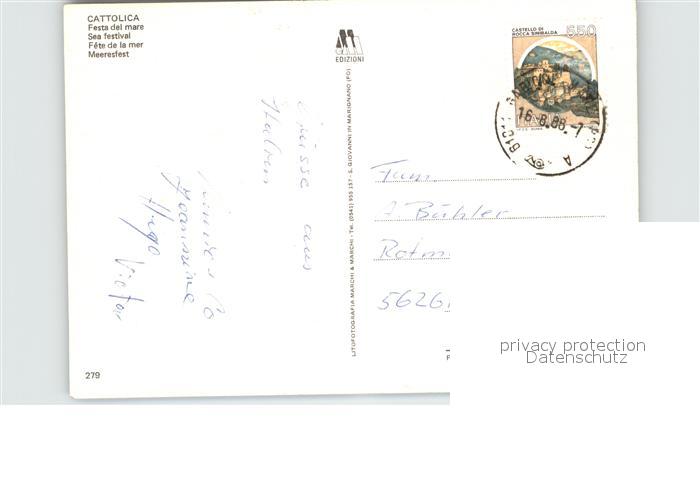 CATTOLICA
Festa del mare
Sea festival
Fête de la mer
Meeresfest
EDIZIONI
CASTELLO DI
ROCCA SINIBALDA
650
16.8.88.-7
Grüsse aus
Italien
Jeannine
Hugo
LITOFOTOGRAFIA MARCHI & MARCHI - Tel. (0541) 955 157 - S. GIOVANNI IN MARIGNANO (FO)
Fam.
A Bühler
5626
privacy protection
Datenschutz
279